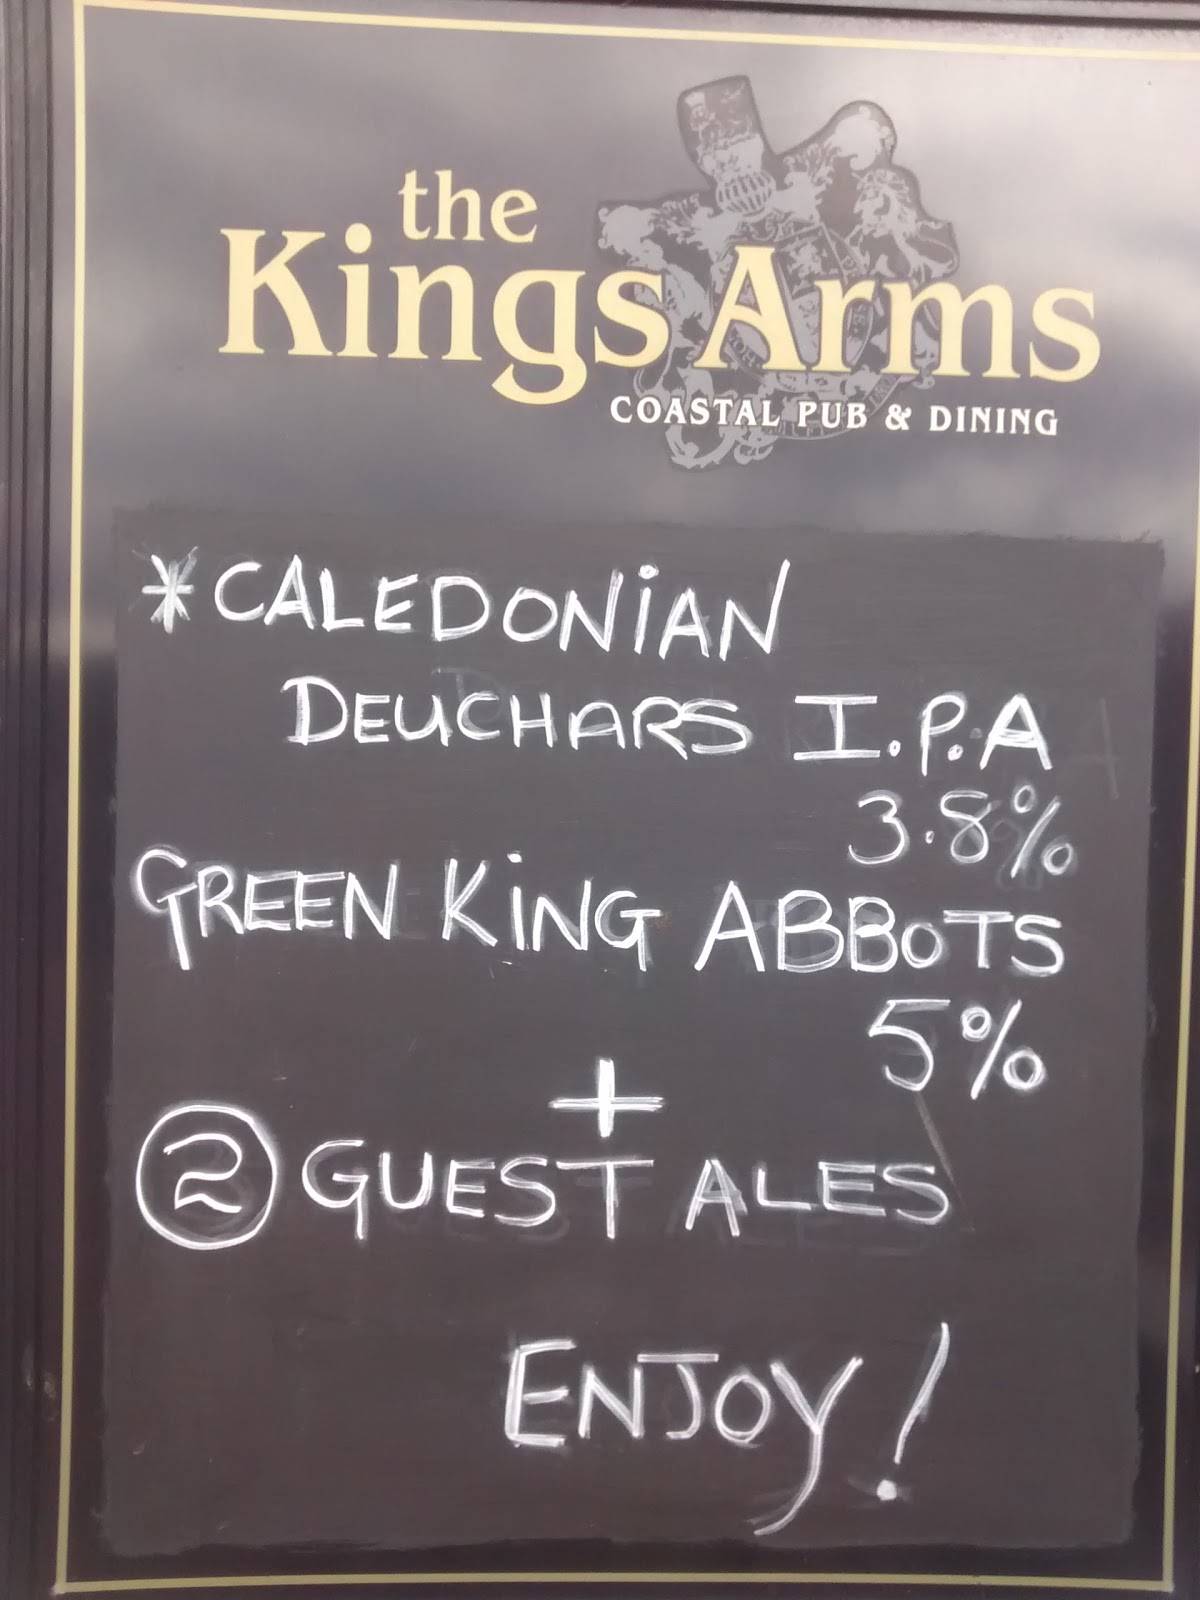 the
Kings Arms
COASTAL PUB & DINING
*CALEDONiAN
DEUCHARS I.P.A
3.8%
GREEN KiNG ABBOTS
5%
+
2 GUEST ALES
ENJOY!